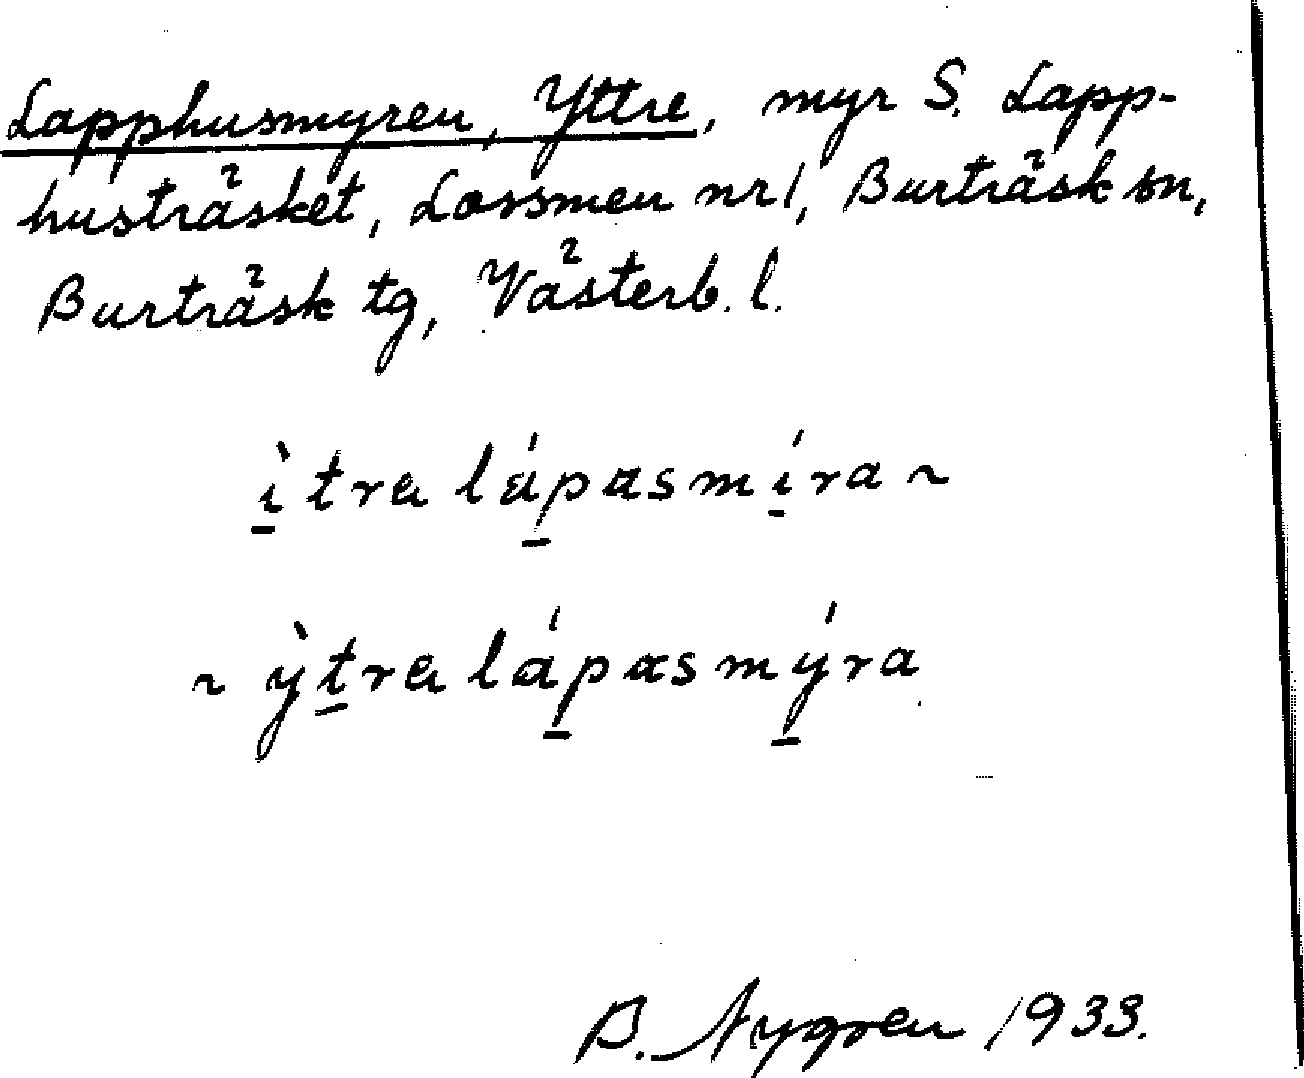 Lapphusmyren, Yttre, myr S. Lapp-
husträsket, Lossmen nr 1, Burträsk sn,
Burträsk tg, Västerb. l.
ì̱tra láp̱asmí̱ra ~
~ ỳṯra láp̱asmý̱ra
B. Nygren 1933.